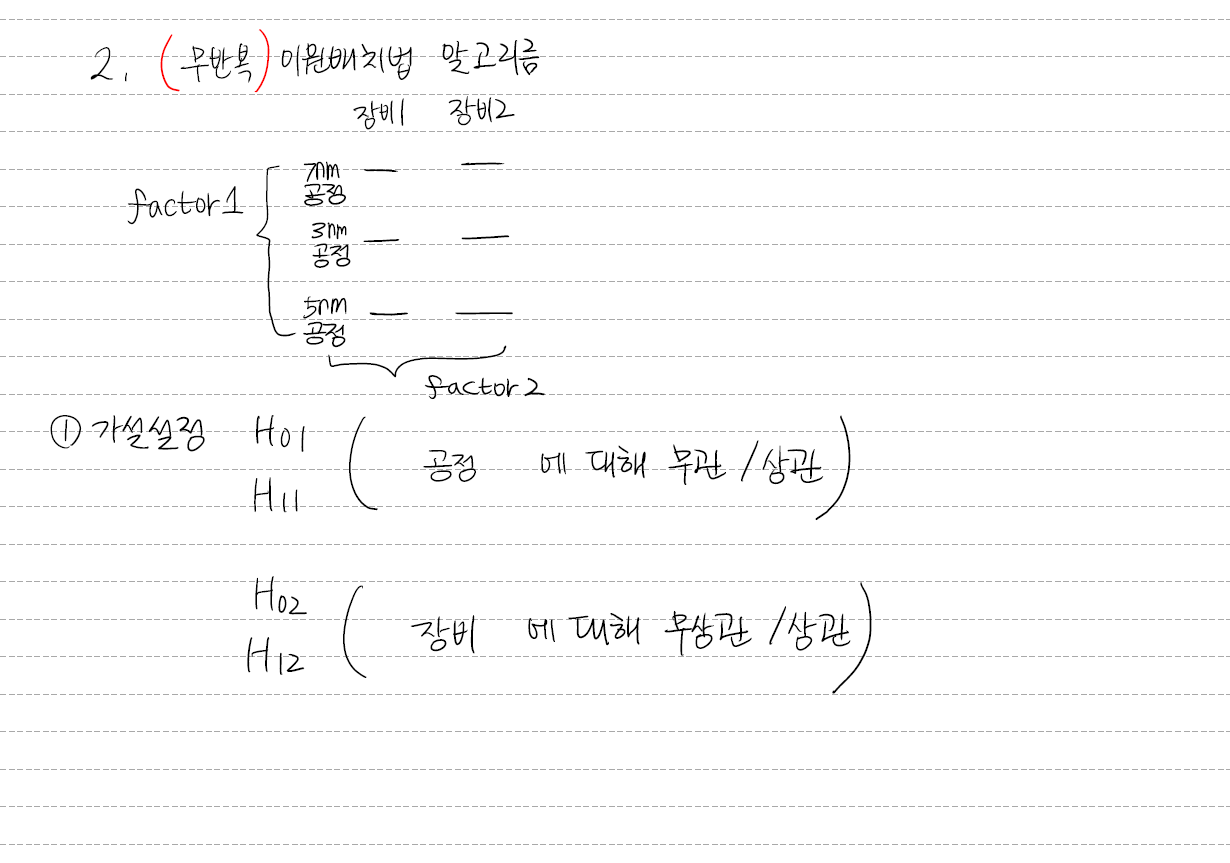 2. (무반복)이원배치법 알고리즘
장비1 장비2
7nm
공정
factor1
3nm
공정
5nm
공정
factor2
① 가설설정 H01
공정 에 대해 무관 /상관
H11
H02
장비 에 대해 무상관 /상관
H12